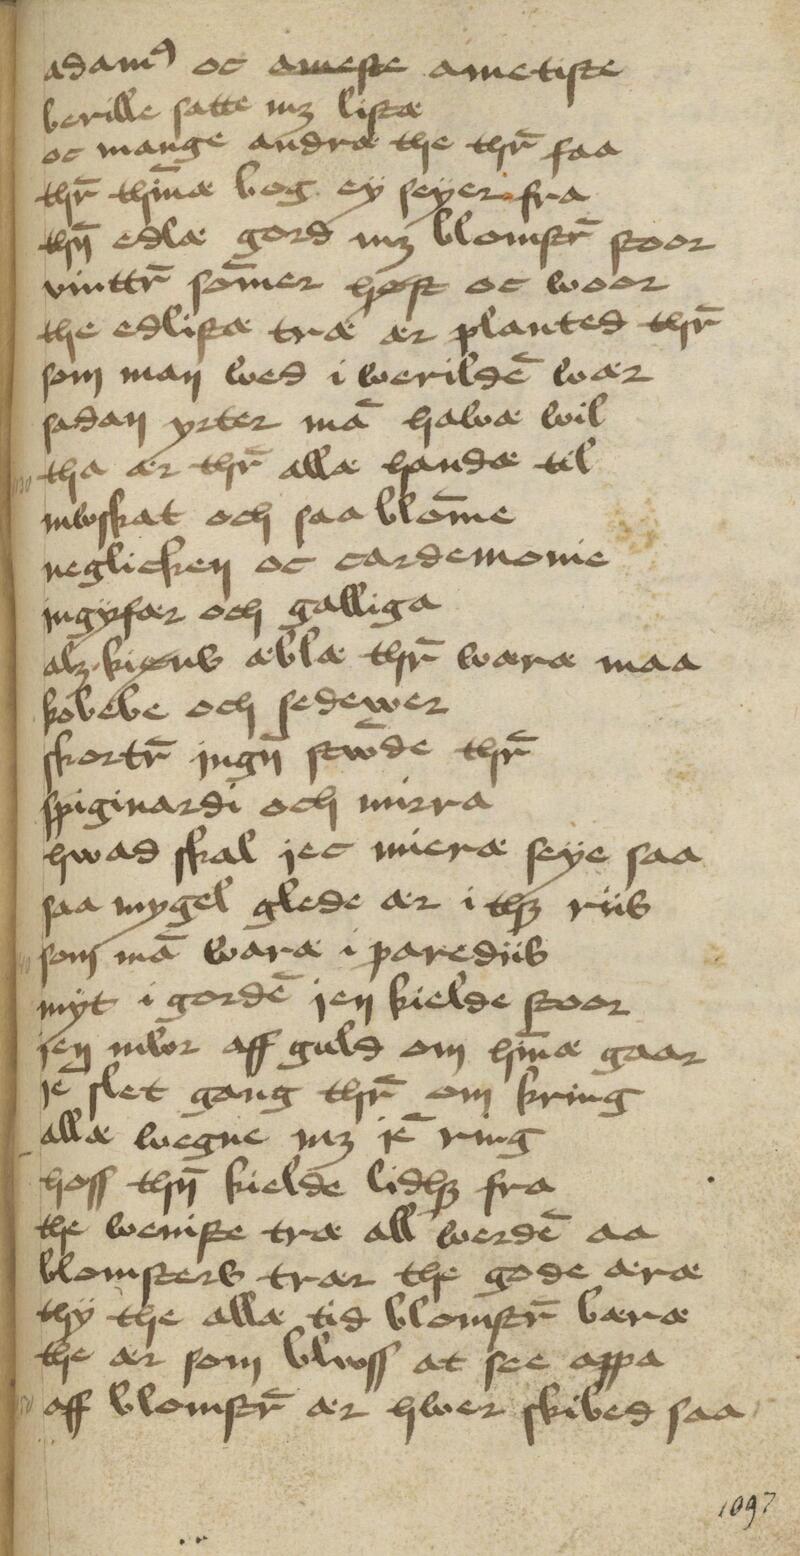 adamꝰ oc ameste ametiste
berille satte mꝫ listæ
oc mange andræ the thr̄ faa
thr̄ thīnæ bog ey seyer fra
thn̄ edlæ gord mꝫ blomstr̄ stoor
vinttr̄ som̄er høst oc woor
the edlistæ træ ær planted thr̄
som man wed i werildē wær
sadan yrter mā hawæ wil
tha ær thr̄ allæ handæ til
mwskat och saa blom̄e
neglicken oc cardemonie
ingyfær och galliga
alꝫ kiøns æblæ thr̄ wæræ maa
kobebe och sedewer
skortr̄ ingn̄ stw̄de thr̄
spiginardi och mirra
hwad skal jec mieræ seye saa
saa mygel glede ær i thꝫ riis
som mā waræ i parediis
myt i gordē jen kielde stoor
jen mwr aff guld om hīnæ gaar
jē slet gang thr̄ om kring
allæ wegne mꝫ jē ring
hoss thn̄ kielde lidhꝫ fra
the weniste træ all werdē aa
blomsters trær the gode æræ
thy the allæ tid blomstr̄ bæræ
the ær som blwss at see oppa
aff blomstr̄ ær hwer skibed saa
1097